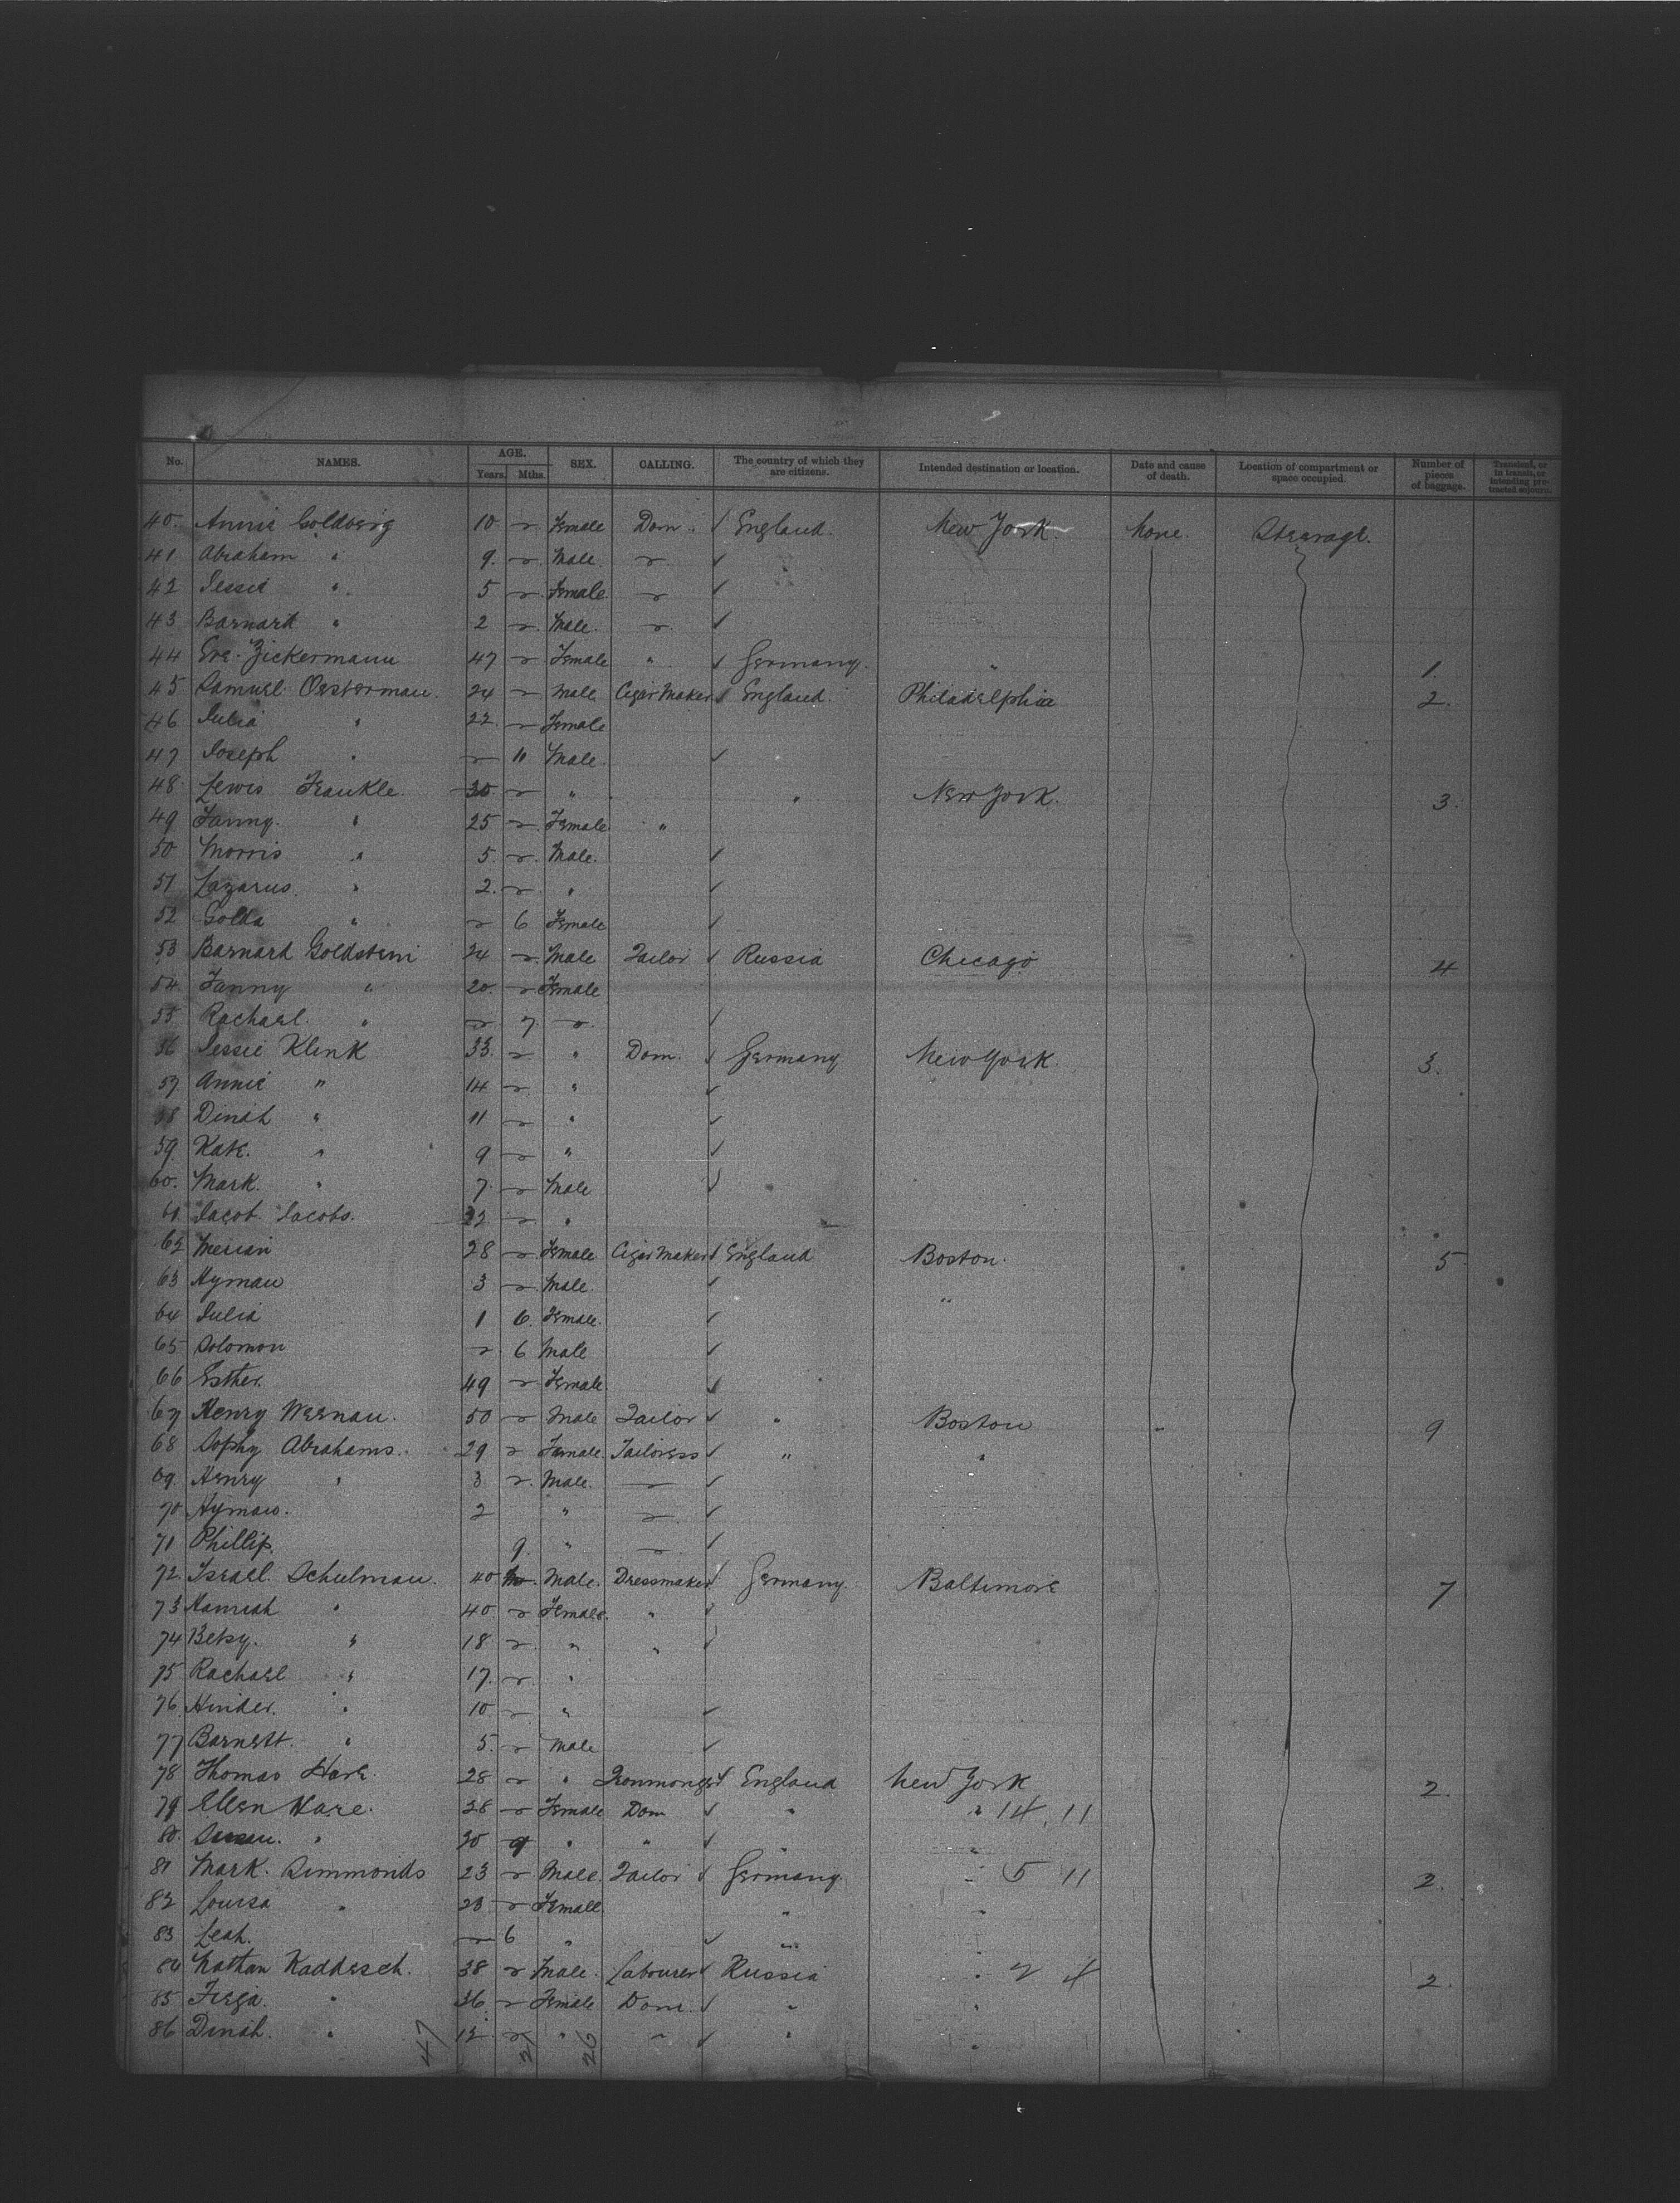 No. NAMES. AGE. Years. Mths. SEX. CALLING. The country of which they are citizens. Intended destination or location. Date and cause of death. Location of compartment or space occupied. Number of pieces of baggage. Transient, or in transit, or intending protracted sojourn.
40. Annie Goldberg 10. Female Dom. ✓ England. New York. None. Stearage.
41 Abraham " 9. Male. ✓
42 Jessie " 5 Female. ✓
43 Barnard " 2 Male. ✓
44 Eve. Zickermann 47 Female " ✓ Germany. " 1.
45 Samuel Oesterman. 24 Male Cigar Maker ✓ England. Philadelphia 2.
46 Julia " 22. Female
47 Joseph " 11 Male. ✓
48. Lewis Frankle. 30 " " New York. 3.
49 Fanny. " 25 Female "
50 Morris " 5. Male. ✓
51 Lazarus. " 2. " ✓
52 Golda " 6 Female ✓
53 Barnard Goldstein 24 Male Tailor ✓ Russia Chicago 4
54. Fanny " 20. Female
55 Rachael. " 7. ✓
56 Jessie Klink 33. " Dom. ✓ Germany New York. 3.
57. Annie " 14 " ✓
58 Dinah " 11 " ✓
59 Kate. " 9 " ✓
60. Mark. " 7. Male ✓
61 Jacob Jacobs. "
62 Merian 28 Female Cigar Maker ✓ England Boston. 5
63 Hyman 3 Male. ✓ "
64 Julia 1 6. Female. ✓
65 Solomon 6 Male ✓
66 Esther. 49 Female ✓
67 Henry Weenan. 50 Male Tailor ✓ " Boston 9
68 Sophy Abrahams. 29 Female Tailoress ✓ " "
69. Henry " 3 Male. ✓
70 Hyman. 2 " ✓
71 Phillip. 9. " ✓
72. Israel. Schulman. 40 Male. Dressmaker ✓ Germany. Baltimore 7
73 Hannah " 40. Female. " ✓
74 Betsy. " 18 " " ✓
75 Rachael " 17. "
76 Hinder. " 10 " ✓
77 Barnett. " 5. Male ✓
78 Thomas Hare. 28 " Ironmonger ✓ England New York 2.
79 Ellen Hare. 28 Female Dom ✓ " " 14. 11
80. Susan. " 9 " " ✓ " "
81 Mark. Simmonds 23 Male. Tailor ✓ Germany. " 5 11 2.
82 Louisa " 20 Female " "
83 Leah. 6 " ✓ " "
84 Nathan Kaddesch. 38 Male. Labourer ✓ Russia " 2 4 2.
85 Feiga. " 36. Female Dom. ✓ " "
86 Dinah. " 12 " ✓ " "
47 21 26